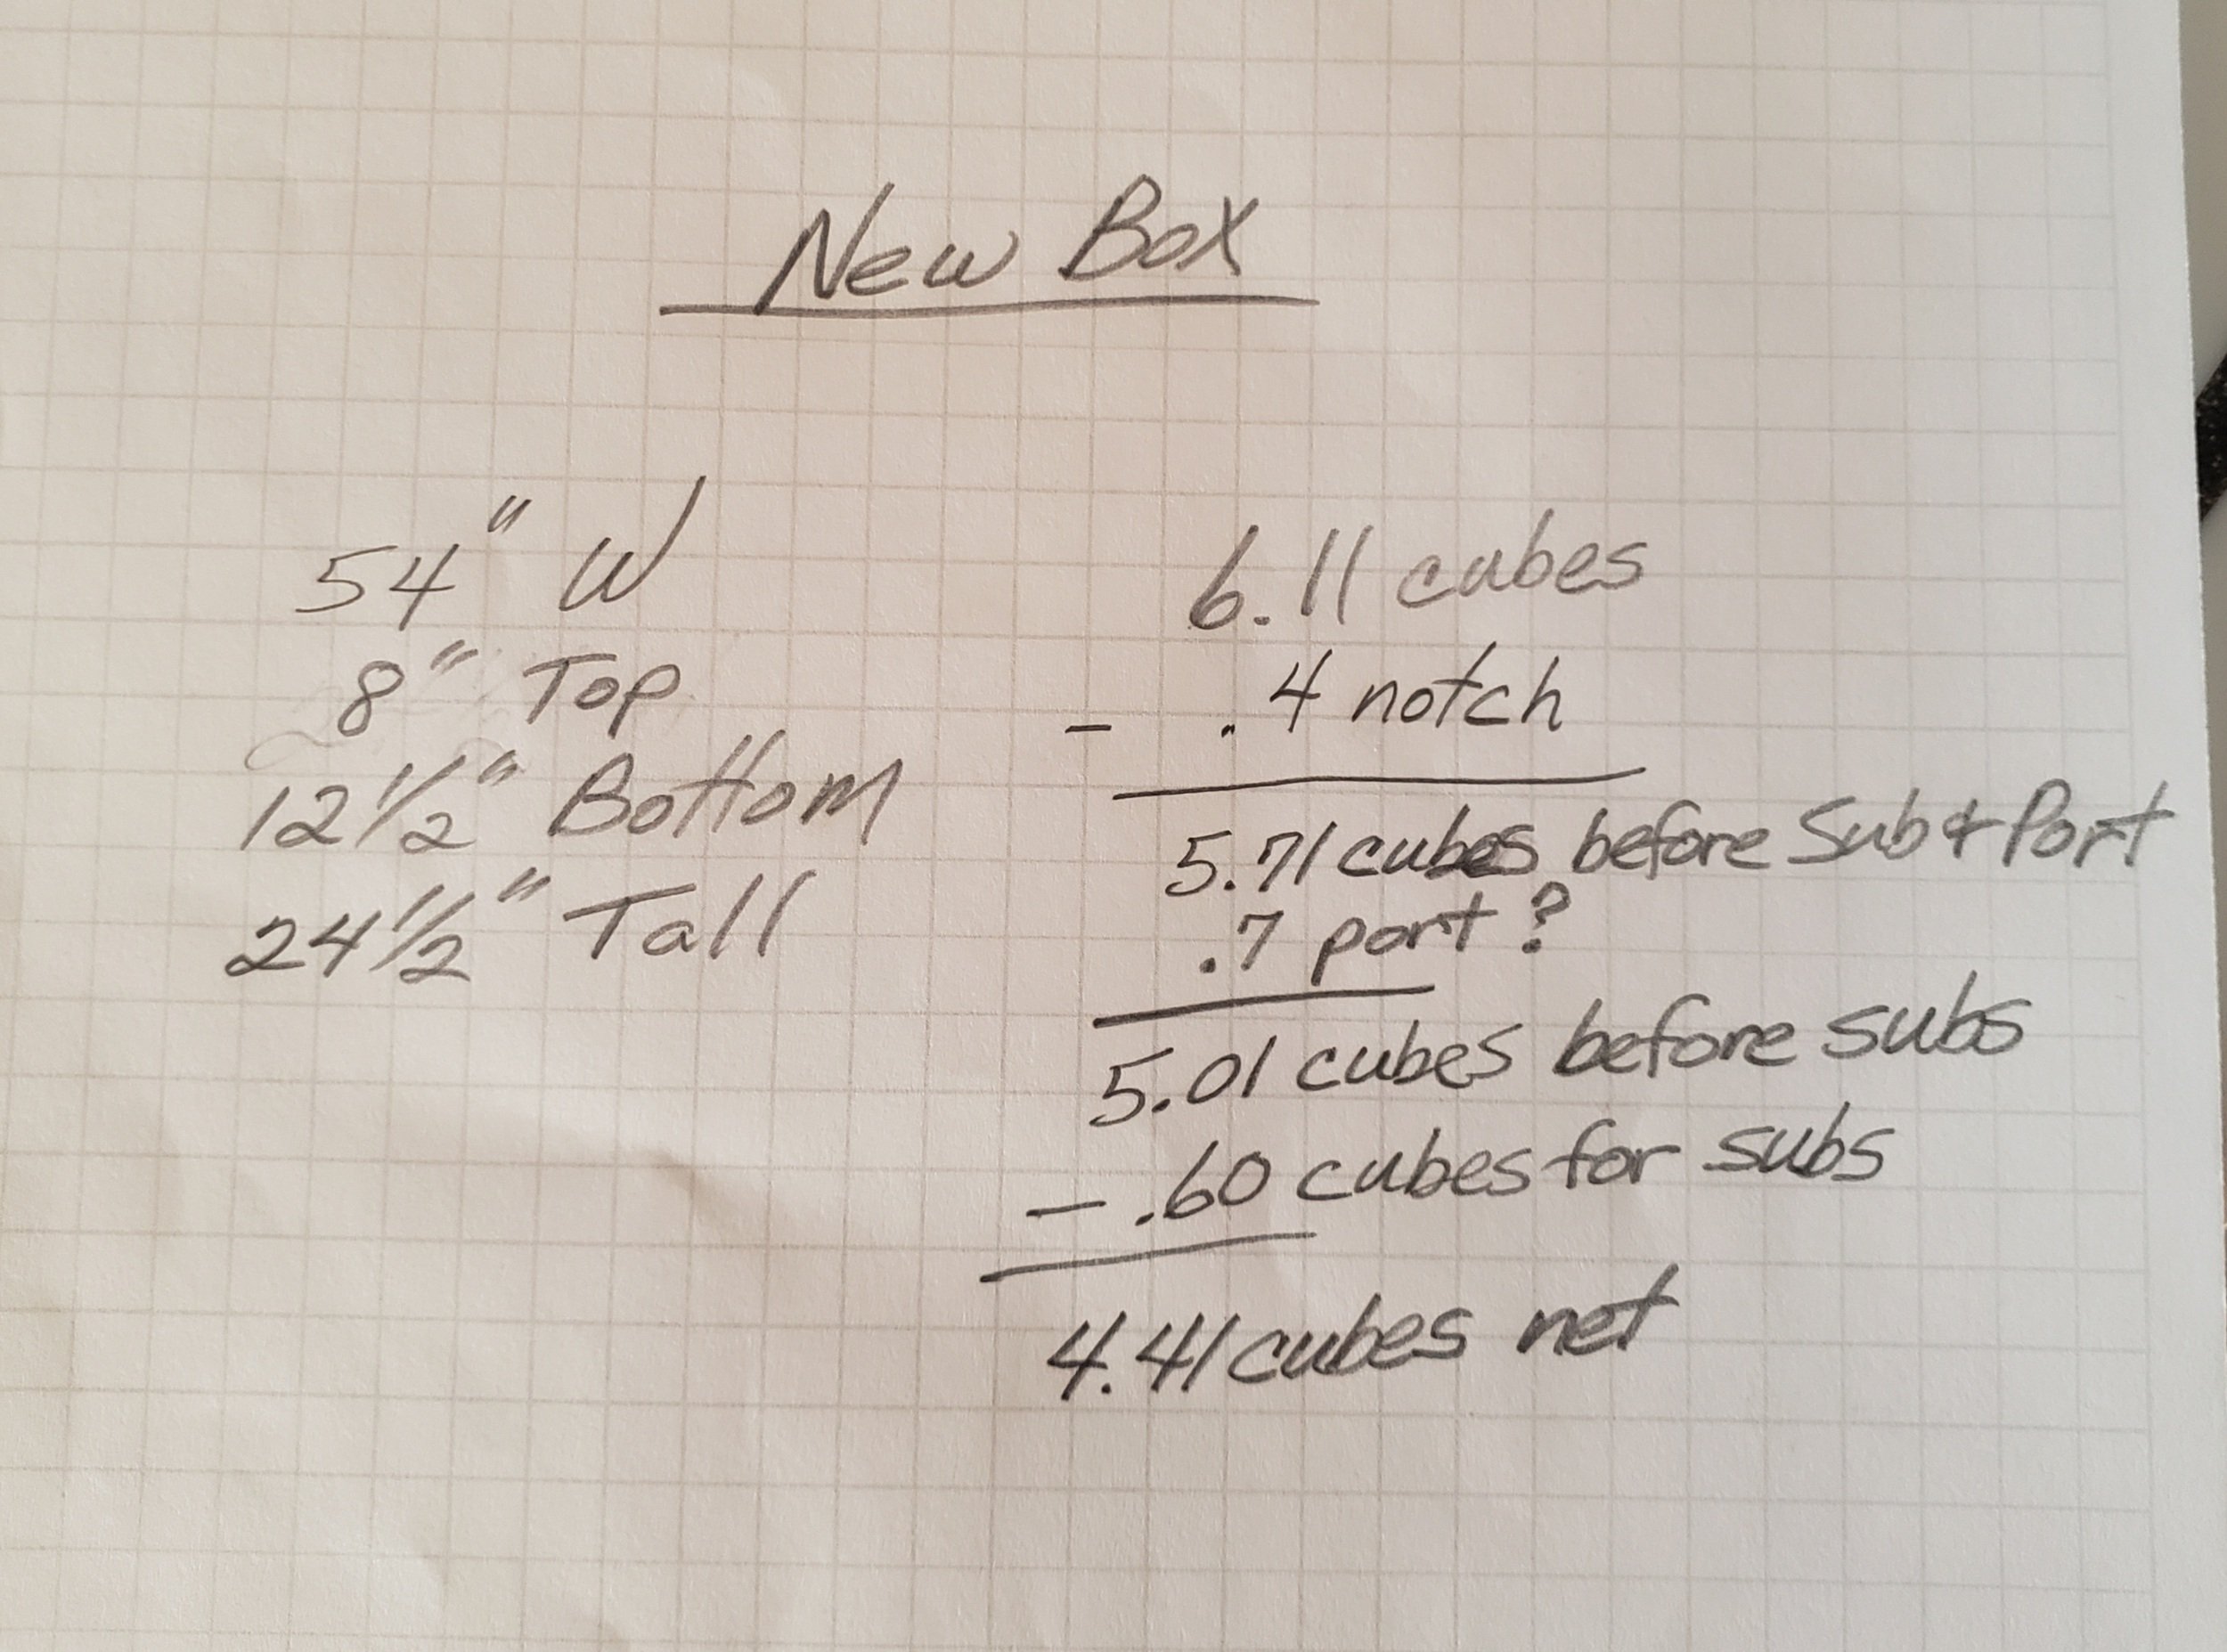 New Box
54" W
8" Top
12 1/2" Bottom
24 1/2" Tall
6.11 cubes
- .4 notch
5.71 cubes before Sub & Port
.7 port?
5.01 cubes before subs
- .60 cubes for subs
4.41 cubes net